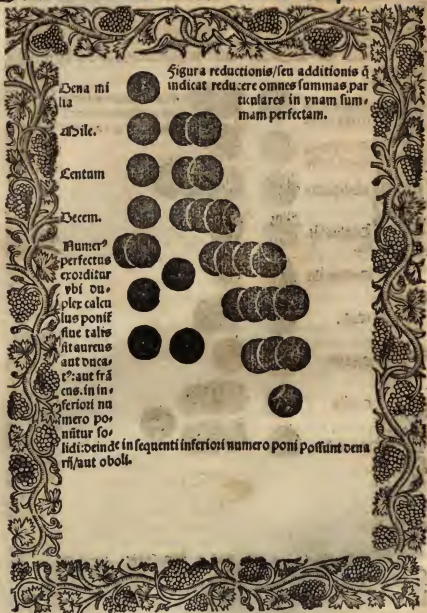 Figura reductionis/seu additionis q̃
indicat reducere omnes summas par
ticulares in vnam sum-
mam perfectam.
Dena mi
lia
Mile.
Centum
Decem.
Numerꝰ
perfectus
exorditur
vbi du-
plex calcu
lus ponit̃
siue talis
sit aureus
aut duca-
tꝰ: aut frã
cus. in in-
feriori nu
mero po-
nũtur so-
lidi: deinde in sequenti inferiori numero poni possunt dena
rĩj/aut oboli.